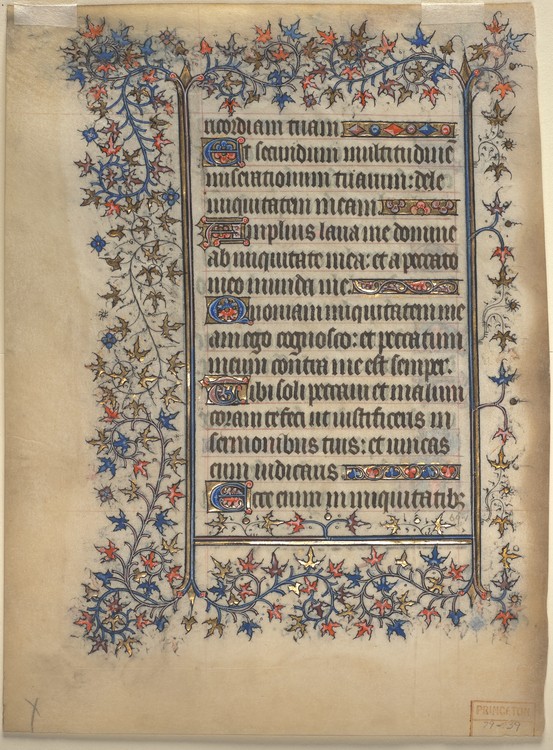 ricordiam tuam
Et secundum multitudinē
miserationum tuarum: dele
iniquitatem meam
Amplius laua me domine
ab iniquitate mea: et a peccato
meo munda me
Quoniam iniquitatem me
am ego cognosco: et peccatum
meum contra me est semper.
Tibi soli peccaui et malum
coram te feci ut iustificeris in
sermonibus tuis: et uincas
cum iudicaris
Ecce enim in iniquitatibꝫ
X
PRINCETON